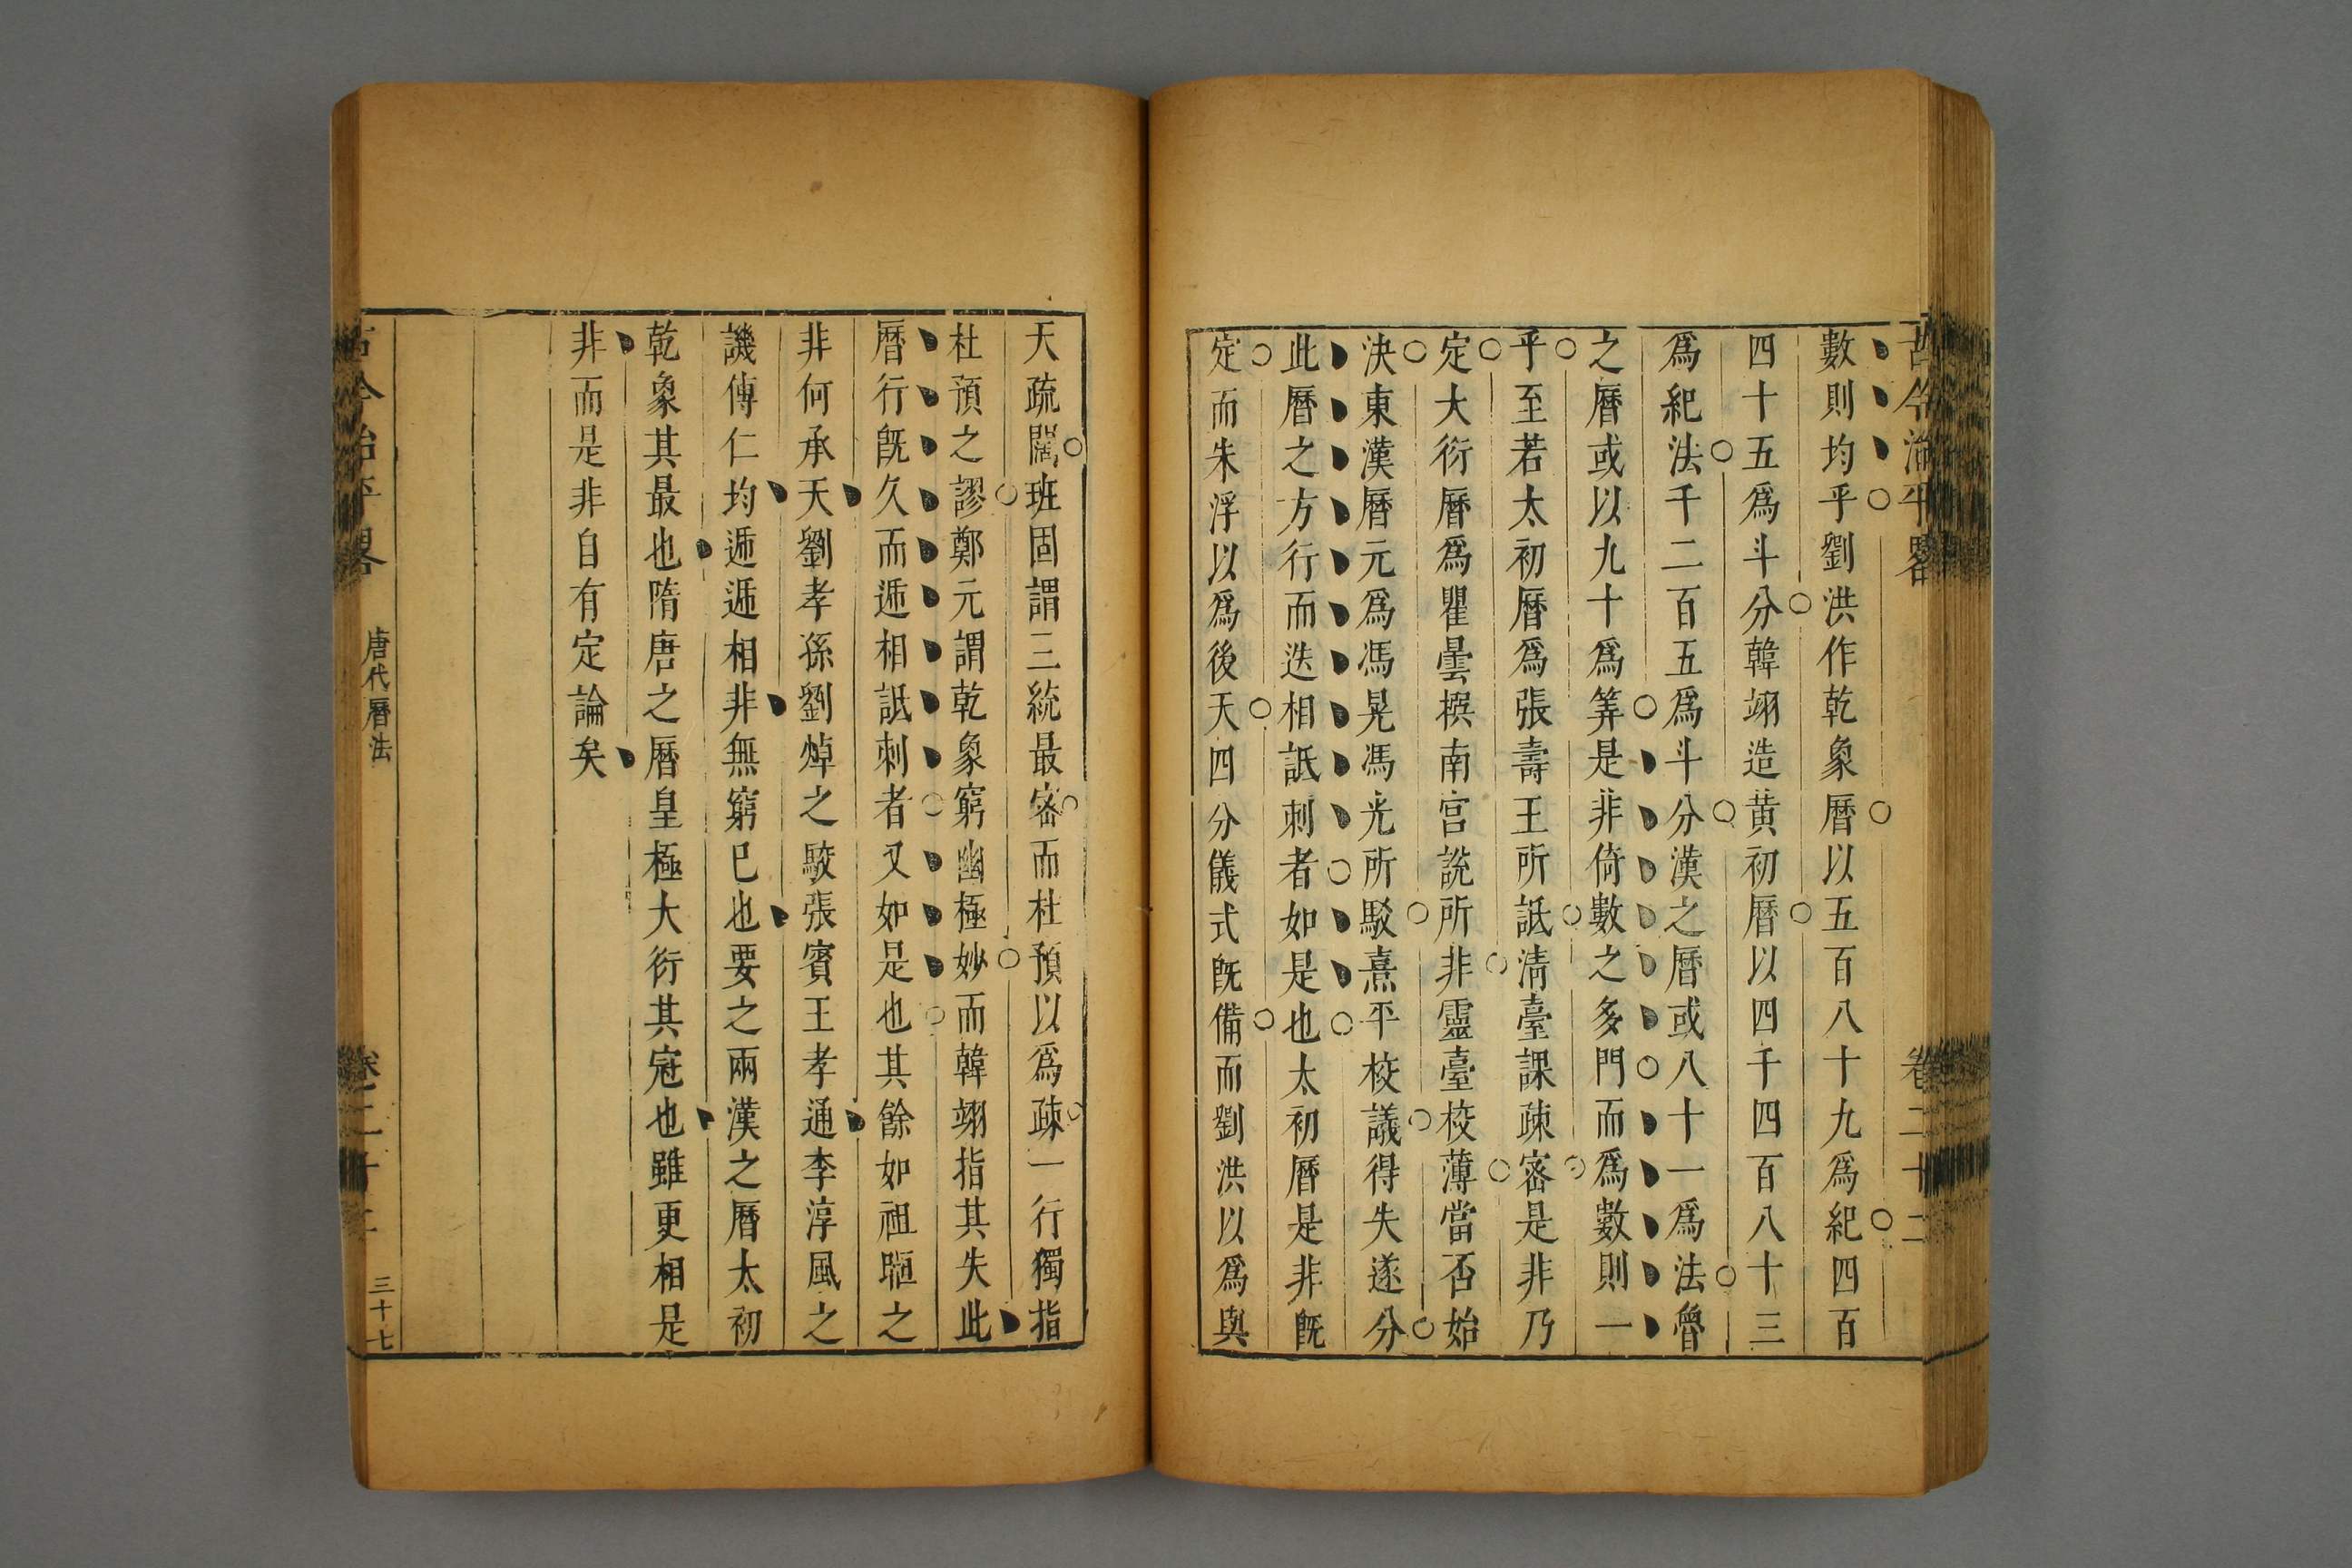 古今治平畧
卷二十二
數則均乎劉洪作乾象曆以五百八十九爲紀四百
四十五爲斗分韓翊造黃初曆以四千四百八十三
爲紀法千二百五爲斗分漢之曆或八十一爲法魯
之曆或以九十爲筭是非倚數之多門而爲數則一
乎至若太初曆爲張壽王所詆淸臺課疎密是非乃
定大衍曆爲瞿曇撰南宮說所非靈臺校薄當否始
決東漢曆元爲馮晃馮光所駁熹平校議得失遂分
此曆之方行而迭相詆刺者如是也太初曆是非旣
定而朱浮以爲後天四分儀式旣備而劉洪以爲與
天疏闊班固謂三統最密而杜預以爲疎一行獨指
杜預之謬鄭元謂乾象窮幽極妙而韓翊指其失此
曆行旣久而遞相詆刺者又如是也其餘如祖暅之
非何承天劉孝孫劉焯之駮張賓王孝通李淳風之
譏傅仁均遞遞相非無窮已也要之兩漢之曆太初
乾象其最也隋唐之曆皇極大衍其宼也雖更相是
非而是非自有定論矣
古今治平畧
唐代曆法
卷二十二
三十七